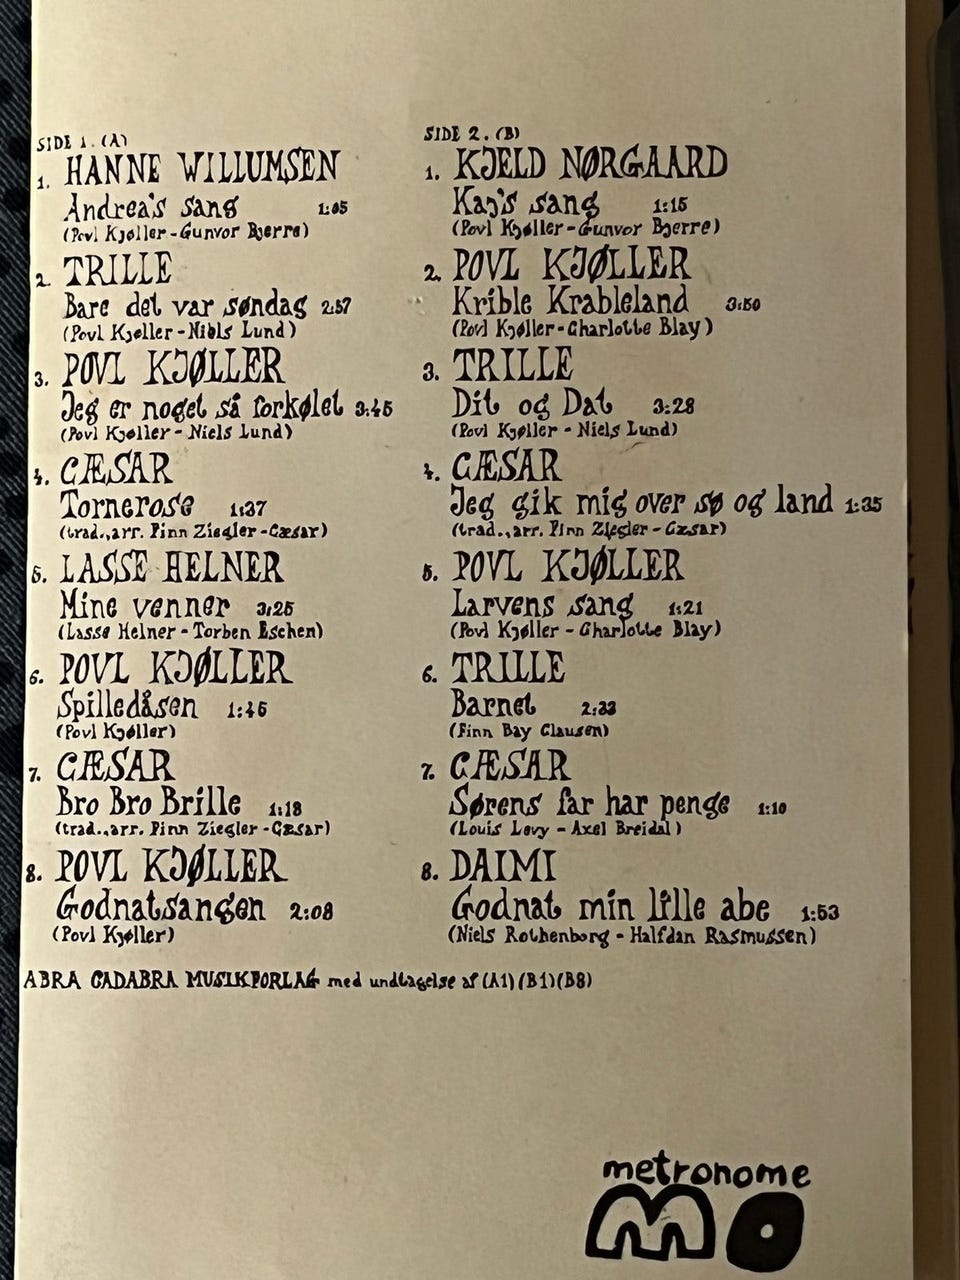 SIDE 1. (A)
1. HANNE WILLUMSEN
Andrea's sang 1:05
(Povl Kjøller-Gunvor Bjerre)
2. TRILLE
Bare det var søndag 2:57
(Povl Kjøller-Niels Lund)
3. POVL KJØLLER
Jeg er noget så forkølet 3:45
(Povl Kjøller-Niels Lund)
4. CÆSAR
Tornerose 1:37
(trad., arr. Finn Ziegler-Cæsar)
5. LASSE HELNER
Mine venner 3:25
(Lasse Helner-Torben Eschen)
6. POVL KJØLLER
Spilledåsen 1:46
(Povl Kjøller)
7. CÆSAR
Bro Bro Brille 1:18
(trad., arr. Finn Ziegler-Cæsar)
8. POVL KJØLLER
Godnatsangen 2:08
(Povl Kjøller)
SIDE 2. (B)
1. KJELD NØRGAARD
Kaj's sang 1:15
(Povl Kjøller-Gunvor Bjerre)
2. POVL KJØLLER
Krible Krableland 3:50
(Povl Kjøller-Charlotte Blay)
3. TRILLE
Dit og Dat 3:28
(Povl Kjøller - Niels Lund)
4. CÆSAR
Jeg gik mig over sø og land 1:35
(trad., arr. Finn Ziegler-Cæsar)
5. POVL KJØLLER
Larvens sang 1:21
(Povl Kjøller-Charlotte Blay)
6. TRILLE
Barnet 2:33
(Finn Bay Clausen)
7. CÆSAR
Sørens far har penge 1:10
(Louis Levy - Axel Breidal)
8. DAIMI
Godnat min lille abe 1:53
(Niels Rothenborg - Halfdan Rasmussen)
ABRA CADABRA MUSIKFORLAG med undtagelse af (A1)(B1)(B8)
metronome
MO